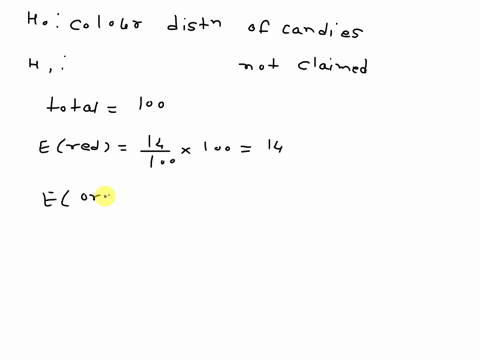 H₀: colour distn of candies
H₁: not claimed
total = 100
E(red) = 14/100 × 100 = 14
E( or